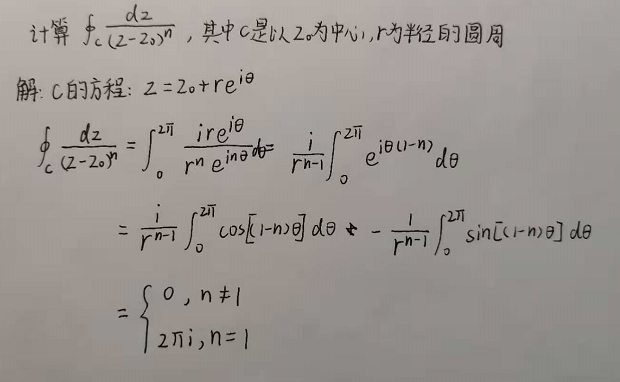 计算 ∮_C dz/(z-z₀)ⁿ , 其中C是以z₀为中心, r为半径的圆周
解: C的方程: z=z₀+re^{iθ}
∮_C dz/(z-z₀)ⁿ = ∫₀^{2π} ire^{iθ}/(rⁿe^{inθ}) dθ = i/r^{n-1} ∫₀^{2π} e^{iθ(1-n)} dθ
= i/r^{n-1} ∫₀^{2π} cos[(1-n)θ] dθ - 1/r^{n-1} ∫₀^{2π} sin[(1-n)θ] dθ
= { 0 , n≠1
2πi, n=1